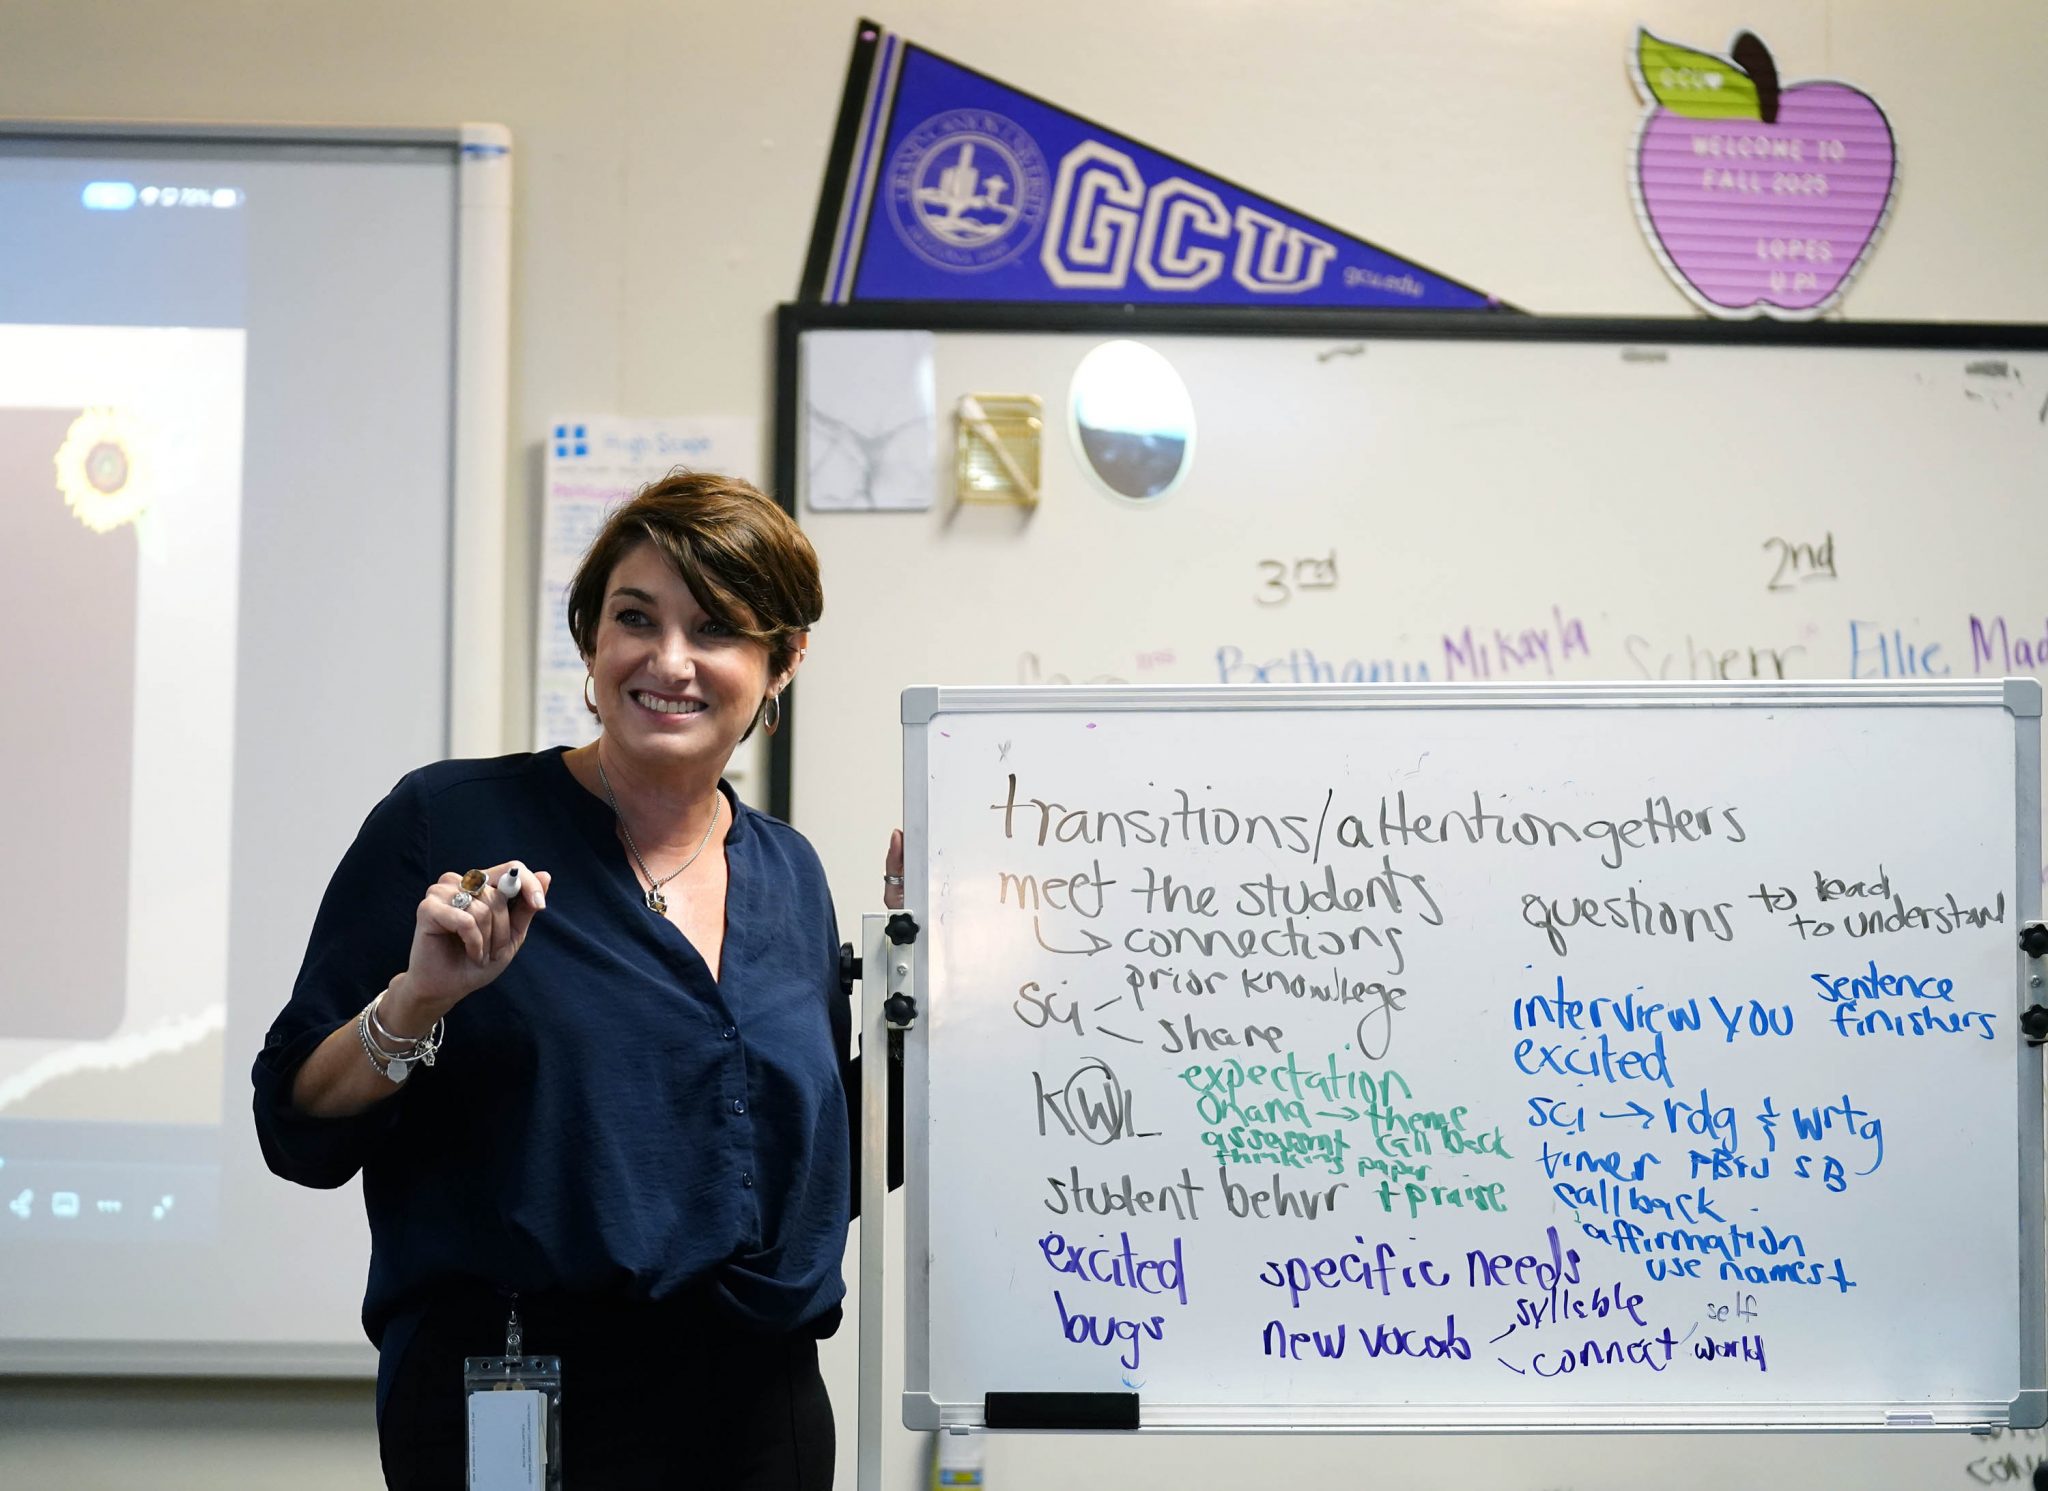 GRAND CANYON UNIVERSITY
GCU
gcu.edu
GCU
WELCOME TO
FALL 2025
LOPES
UP!
73%
High Scope
3rd
2nd
Bethany Mikayla Scherr Ellie Mad
transitions/attentiongetters
meet the students
connections
questions to lead
to understand
sci prior knowledge
share
interview you sentence
finishers
excited
KWL expectation
Ohana → theme
assessmt call back
thinking paper
sci → rdg & wrtg
timer SB
callback
student behvr + praise
affirmation
use names +
excited
bugs
specific needs
new vocab syllable
connect self
world